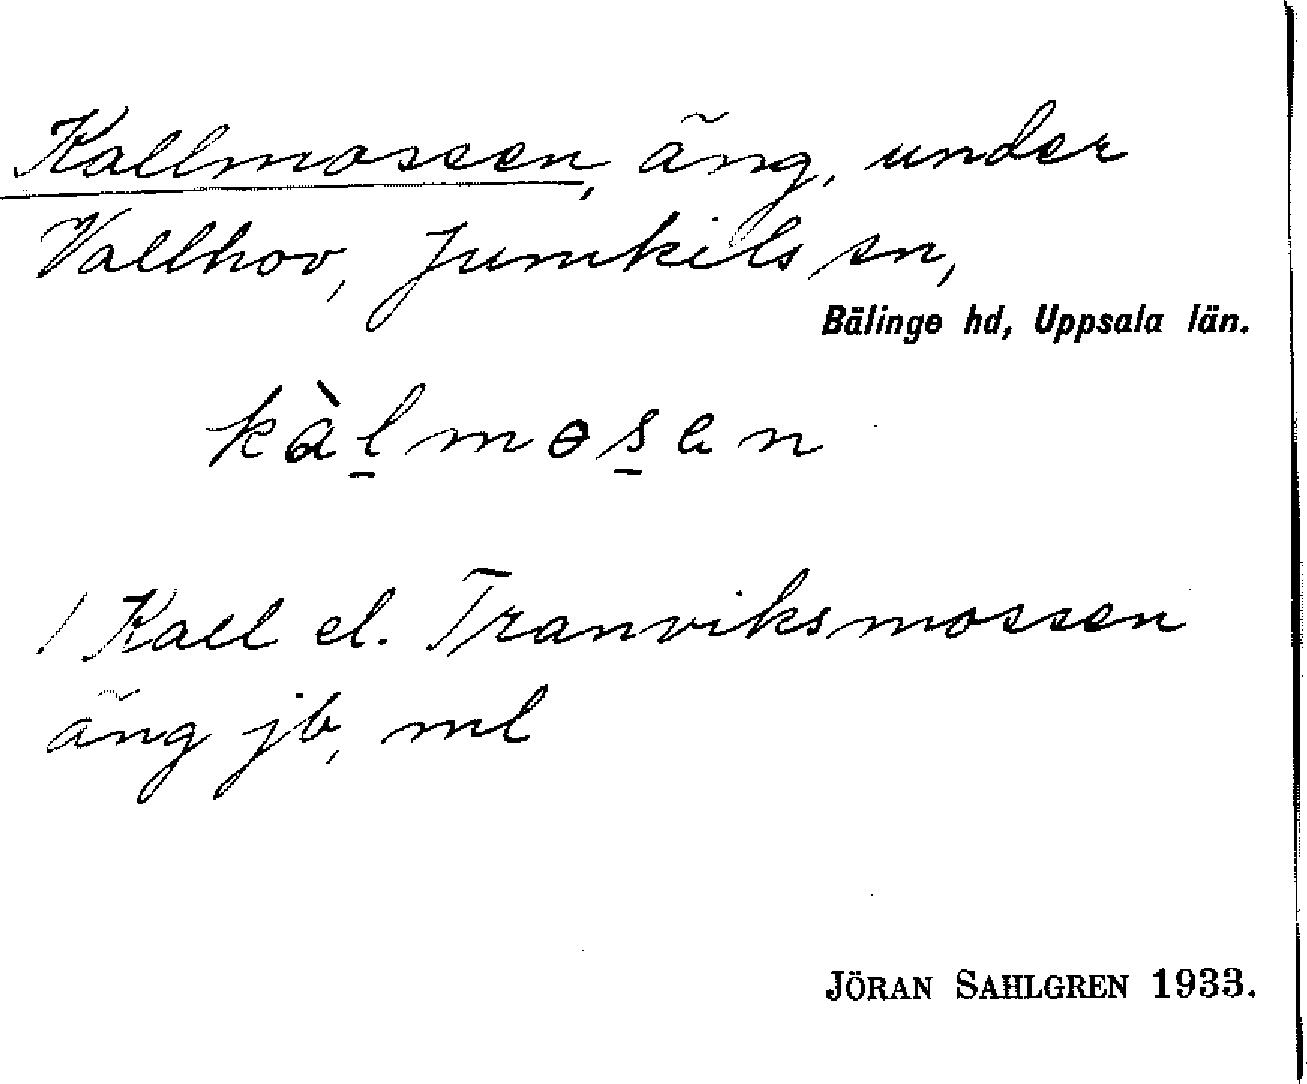 Kallmossen, äng, under
Vallhov, Jumkils sn,
Bälinge hd, Uppsala län.
kàl̠mɵs̠en
/ Kall el. Tranviksmossen
äng jb, ml
JÖRAN SAHLGREN 1933.